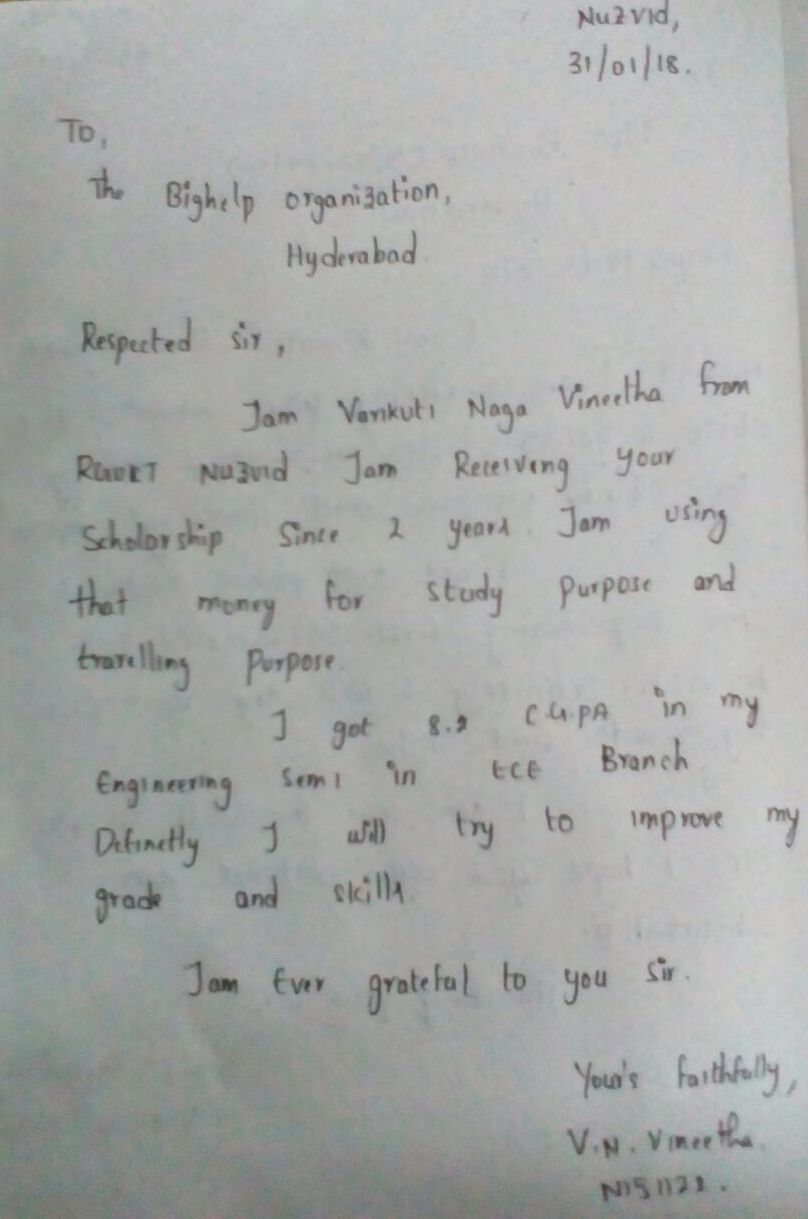 Nuzvid,
31/01/18.
To,
The Bighelp organization,
Hyderabad
Respected sir,
Iam Varikuti Naga Vineetha from
RGUKT Nuzvid Iam Receiving your
Scholorship Since 2 years Iam using
that money for study purpose and
travelling purpose.
I got 8.2 C.G.PA in my
Engineering Sem1 in ECE Branch
Definetly I will try to improve my
grade and skills
Iam Ever grateful to you sir.
Your's faithfully,
V.N. Vineetha.
N151122.